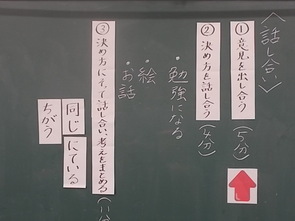 〈話し合い〉
①意見を出し合う（5分）
②決め方を話し合う（4分）
・勉強になる
・絵
・お話
③決め方にそって話し合い、考えをまとめる
同じ にている
ちがう